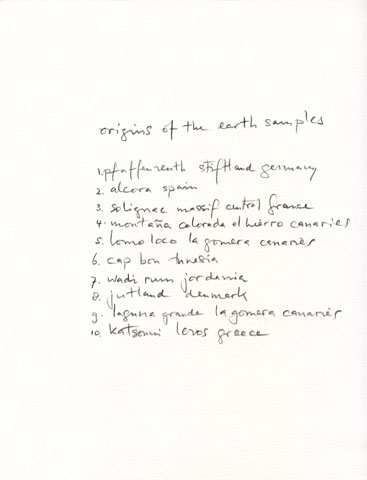 origins of the earth samples
1. pfaffenreuth stiftland germany
2. alcora spain
3. solignac massif central france
4. montaña colorada el hierro canaries
5. lomo loco la gomera canaries
6. cap bon tunesia
7. wadi rum jordania
8. jutland denmark
9. laguna grande la gomera canaries
10. katsouni leros greece